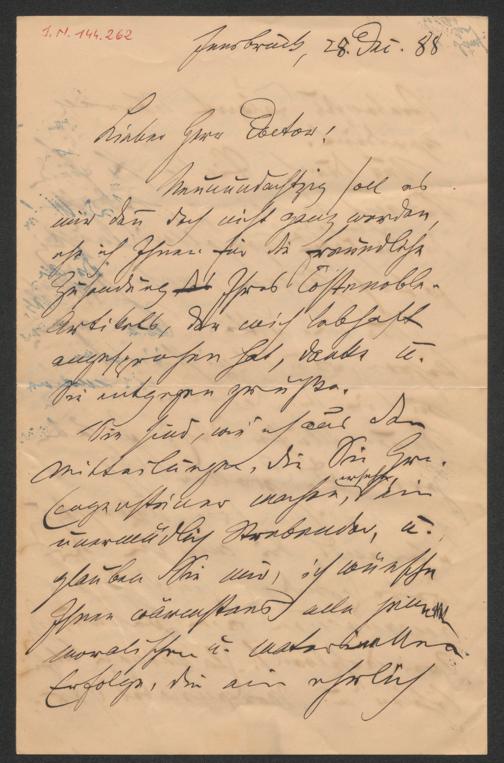 I. N. 144.262
Innsbruck, 28. Dec. 88
Lieber Herr Doctor!
Neunundachtzig soll es
mir den doch nicht ganz werden,
ehe ich Ihnen für die freundliche
Zusendung Ihres Costenoble-
Artikels, der mich lebhaft
angesprochen hat, danke u.
Sie entgegen grüße.
Sie sind, wie ich aus den
Mitteilungen, die Sie
machen, ersehe, ein
unermüdlich Strebender, u.
glauben Sie mir, ich wünsche
Ihnen wärmstens alle jene
moralischen u. materiellen
Erfolge, die ein ehrlich